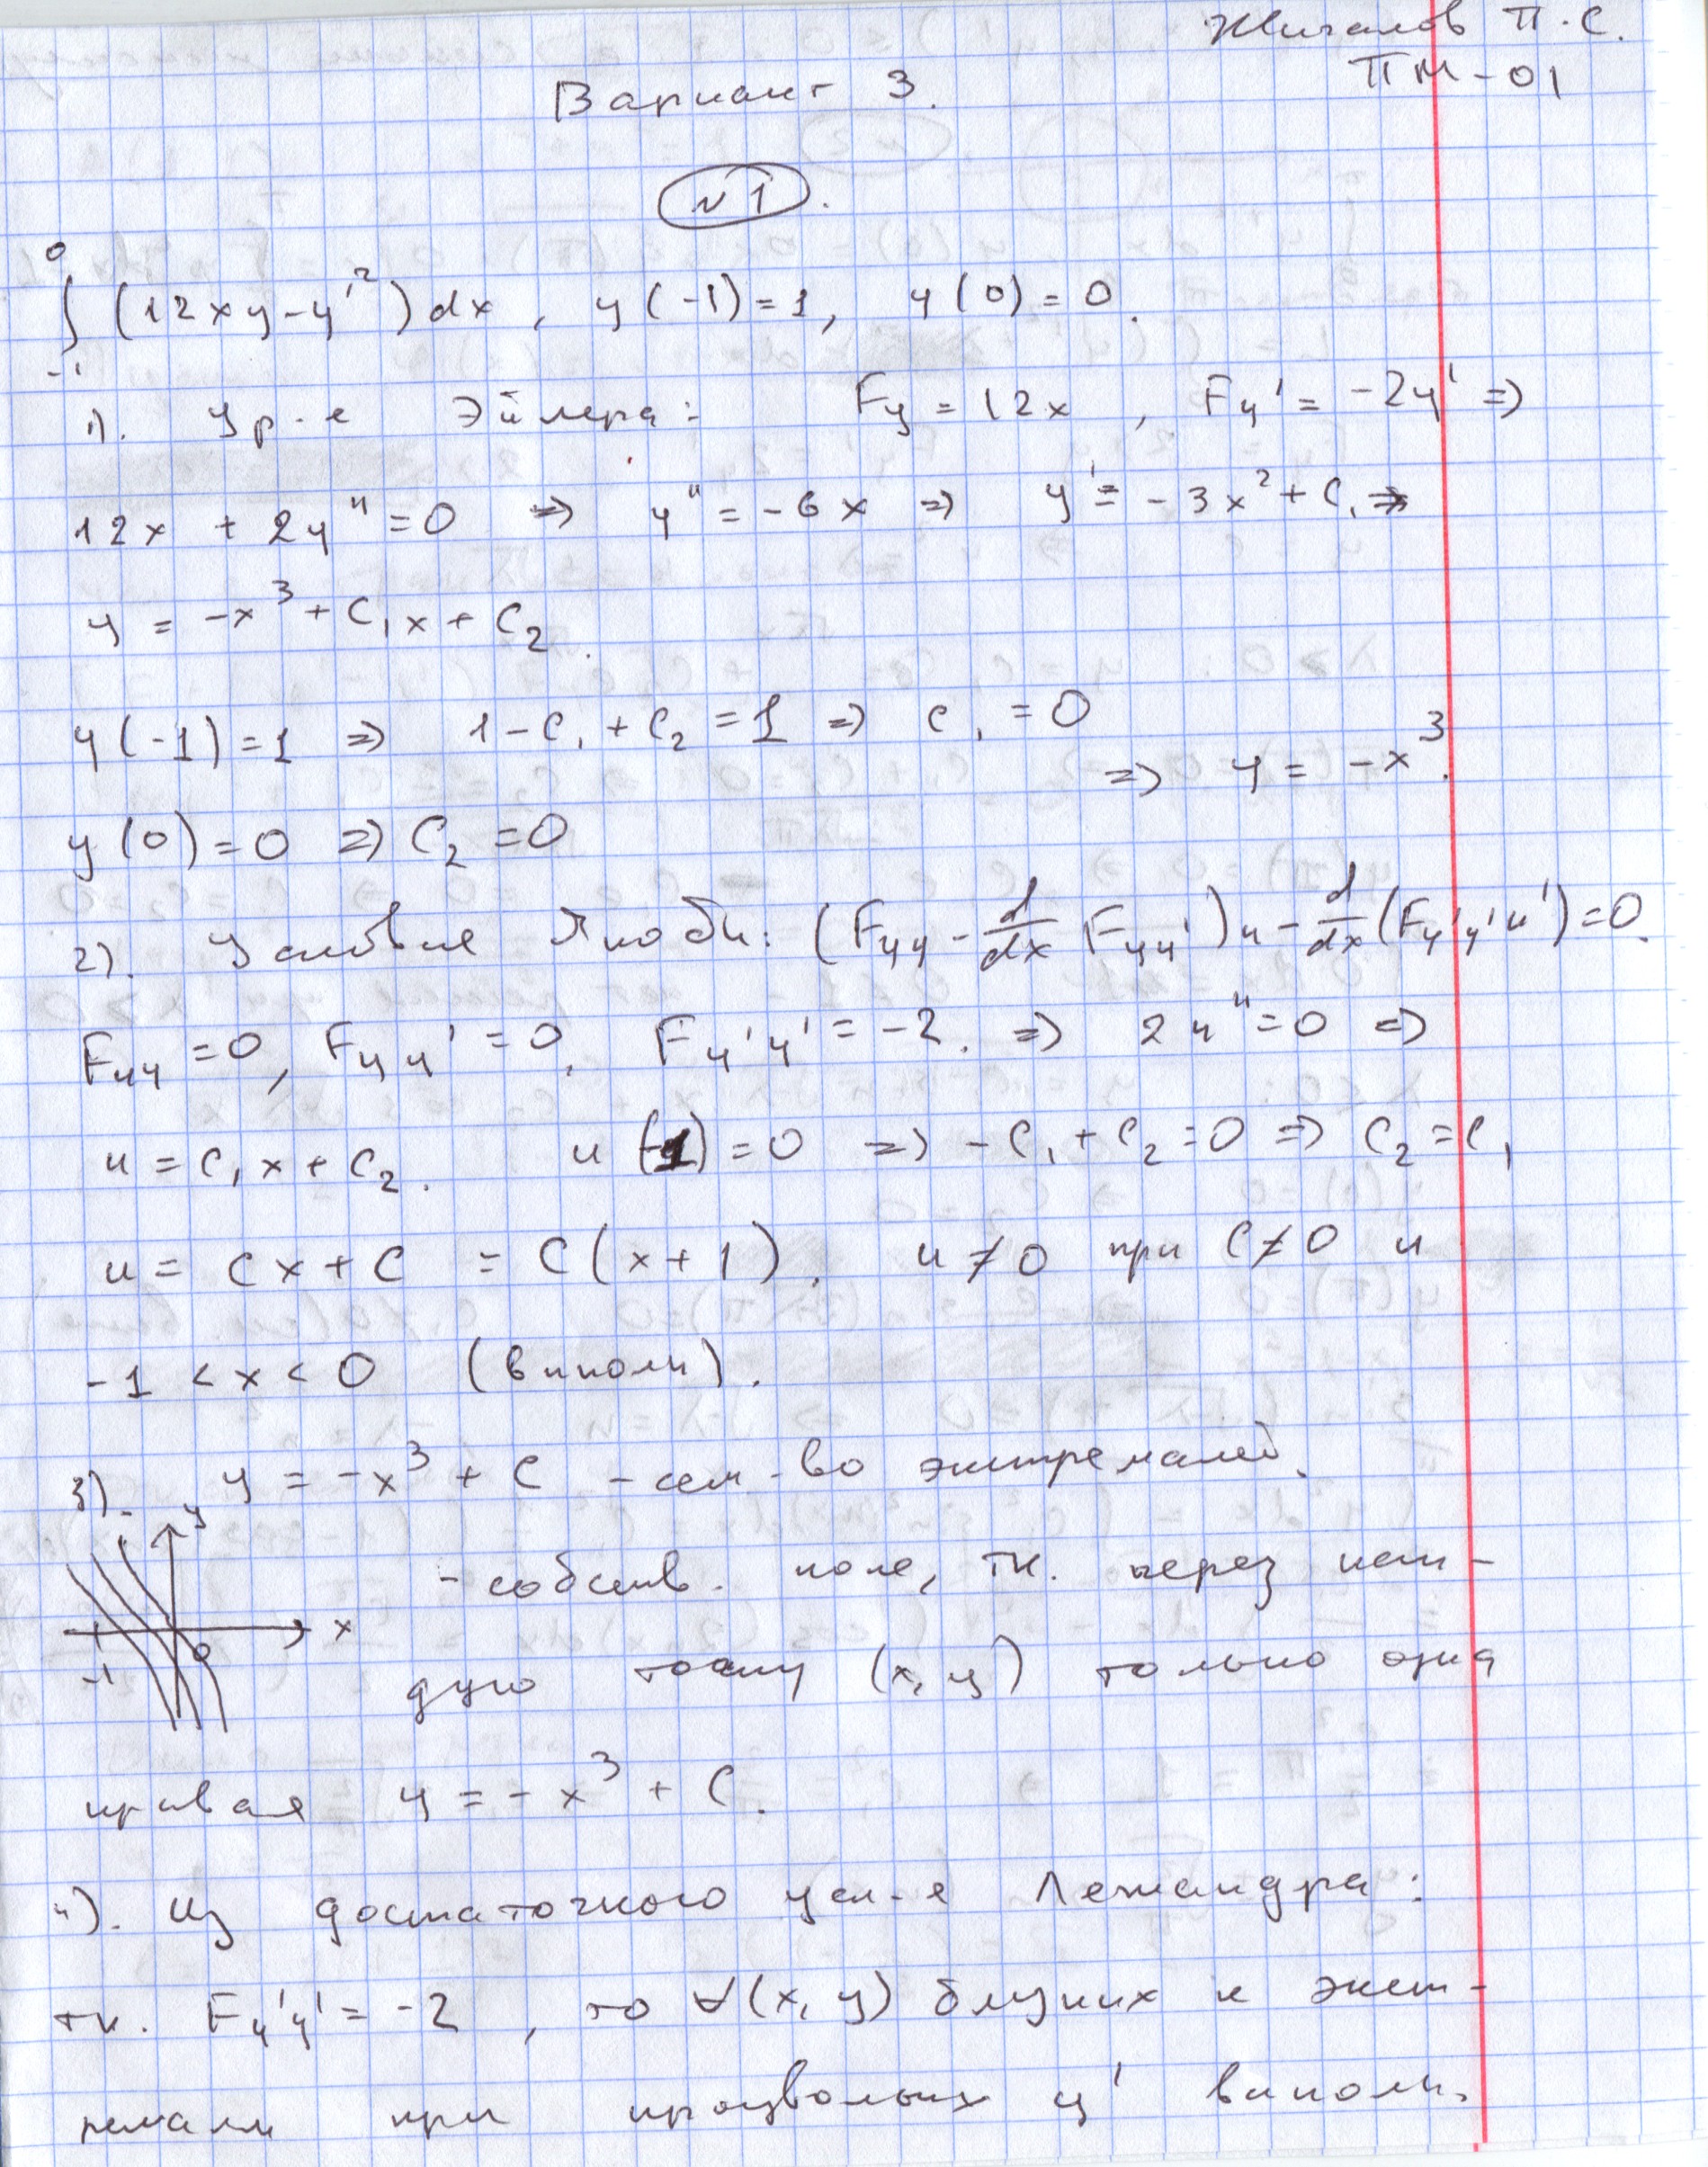 Жигалов П.С.
ПМ-01
Вариант 3.
№1.
∫_{-1}^{0} (12xy - y'²)dx, y(-1)=1, y(0)=0.
1). Ур-е Эйлера: F_y = 12x, F_y' = -2y' =>
12x + 2y'' = 0 => y'' = -6x => y' = -3x² + C₁ =>
y = -x³ + C₁x + C₂.
y(-1)=1 => 1 - C₁ + C₂ = 1 => C₁ = 0
=> y = -x³.
y(0)=0 => C₂ = 0
2). Условие Якоби: (F_yy - d/dx F_yy')u - d/dx(F_y'y' u') = 0.
F_yy = 0, F_yy' = 0, F_y'y' = -2. => 2u'' = 0 =>
u = C₁x + C₂. u(-1) = 0 => -C₁ + C₂ = 0 => C₂ = C₁
u = Cx + C = C(x+1). u ≠ 0 при C ≠ 0 и
-1 < x < 0 (выполн).
3). y = -x³ + C - сем-во экстремалей.
y
x
-1
0
- собств. поле, тк. через каж-
дую точку (x,y) только одна
кривая y = -x³ + C.
4). Из достаточного усл-я Лежандра:
тк. F_y'y' = -2, то ∀(x,y) близких к экст-
ремали при произвольных y' выполн.